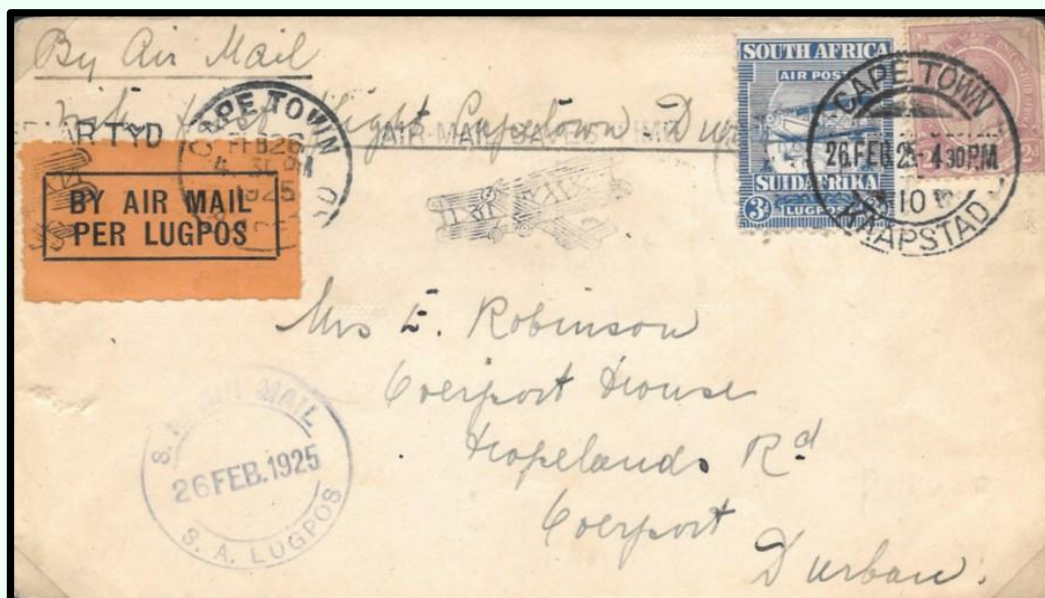 By Air Mail
first flight Capetown - Dur
AIR MAIL SAVES TIME
CAPE TOWN
FEB 26
4. 3 PM
1925
BY AIR MAIL
PER LUGPOS
SOUTH AFRICA
AIR POST
SUIDAFRIKA
3D LUGPOS
CAPE TOWN
26. FEB. 25 - 4 30 PM
10
KAAPSTAD
2d
Mrs E. Robinson
Overport House
Hopelands Rd
Overport
Durban.
S. A. AIR MAIL
26 FEB. 1925
S. A. LUGPOS